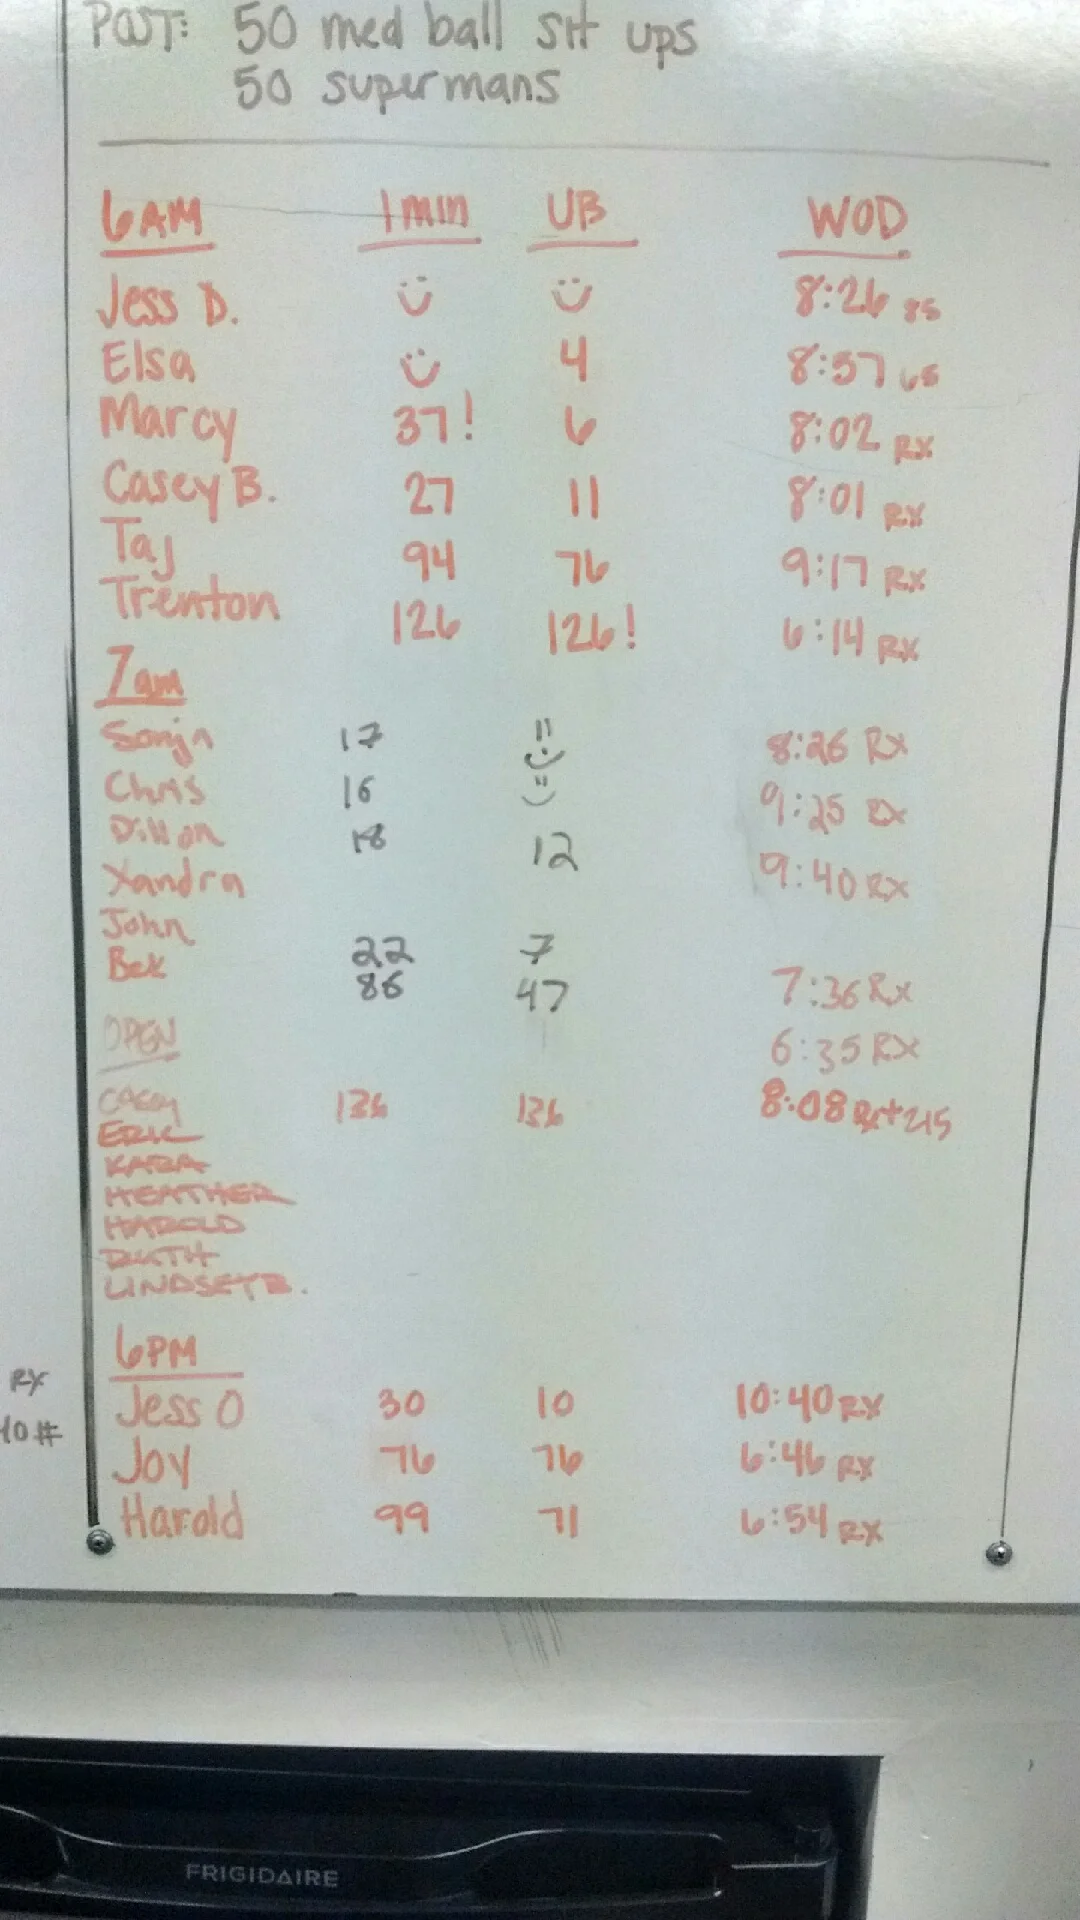 POST: 50 med ball sit ups
50 supermans
6AM 1 min UB WOD
Jess D. 8:26 85
Elsa 4 8:57 65
Marcy 37! 6 8:02 RX
Casey B. 27 11 8:01 RX
Taj 94 76 9:17 RX
Trenton 126 126! 6:14 RX
7am
Sonja 17 8:26 Rx
Chris 16 9:25 Rx
Dillon 18 12 9:40 Rx
Xandra
John 22 7 7:36 Rx
Bek 86 47 6:35 Rx
OPEN
CASEY 136 136 8:08 Rx+215
ERIK
KARA
HEATHER
HAROLD
LINDSEY B.
6PM
RX
Jess O 30 10 10:40 RX
10#
Joy 76 76 6:46 RX
Harold 99 71 6:54 RX
FRIGIDAIRE